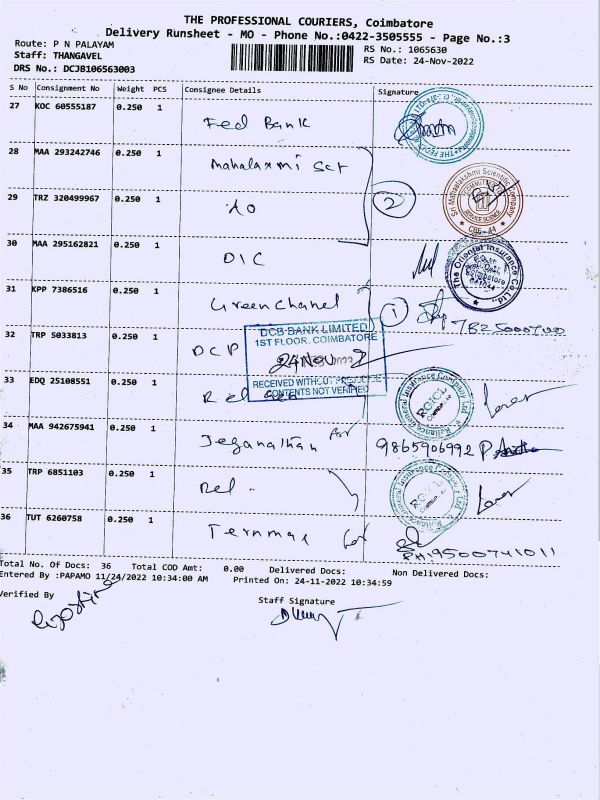 THE PROFESSIONAL COURIERS, Coimbatore
Delivery Runsheet - MO - Phone No.:0422-3505555 - Page No.:3
Route: P N PALAYAM
RS No.: 1065630
Staff: THANGAVEL
RS Date: 24-Nov-2022
DRS No.: DCJB106563003
S No Consignment No Weight PCS Consignee Details Signature
27 KOC 60555187 0.250 1 Fed Bank
28 MAA 293242746 0.250 1 Mahalaxmi
29 TRZ 320499967 0.250 1 2
Sri Mahalakshmi Scientific Company
CBE-44
30 MAA 295162821 0.250 1 DIC
The Oriental Insurance Co Ltd.,
31 KPP 7386516 0.250 1 Green Chanel 1
32 TRP 5033813 0.250 1 DCP
DCB BANK LIMITED
1ST FLOOR, COIMBATORE
24 NOV 2022
RECEIVED WITHOUT PREJUDICE
CONTENTS NOT VERIFIED
33 EDQ 25108551 0.250 1
Reliance General Insurance Company Ltd.
RGICL
34 MAA 942675941 0.250 1 Jeganathan 9865906992
35 TRP 6851103 0.250 1 Rel -
Reliance General Insurance Company Ltd.
RGICL
36 TUT 6260758 0.250 1 9500741011
Total No. Of Docs: 36 Total COD Amt: 0.00 Delivered Docs: Non Delivered Docs:
Entered By :PAPAMO 11/24/2022 10:34:00 AM Printed On: 24-11-2022 10:34:59
Verified By
Staff Signature